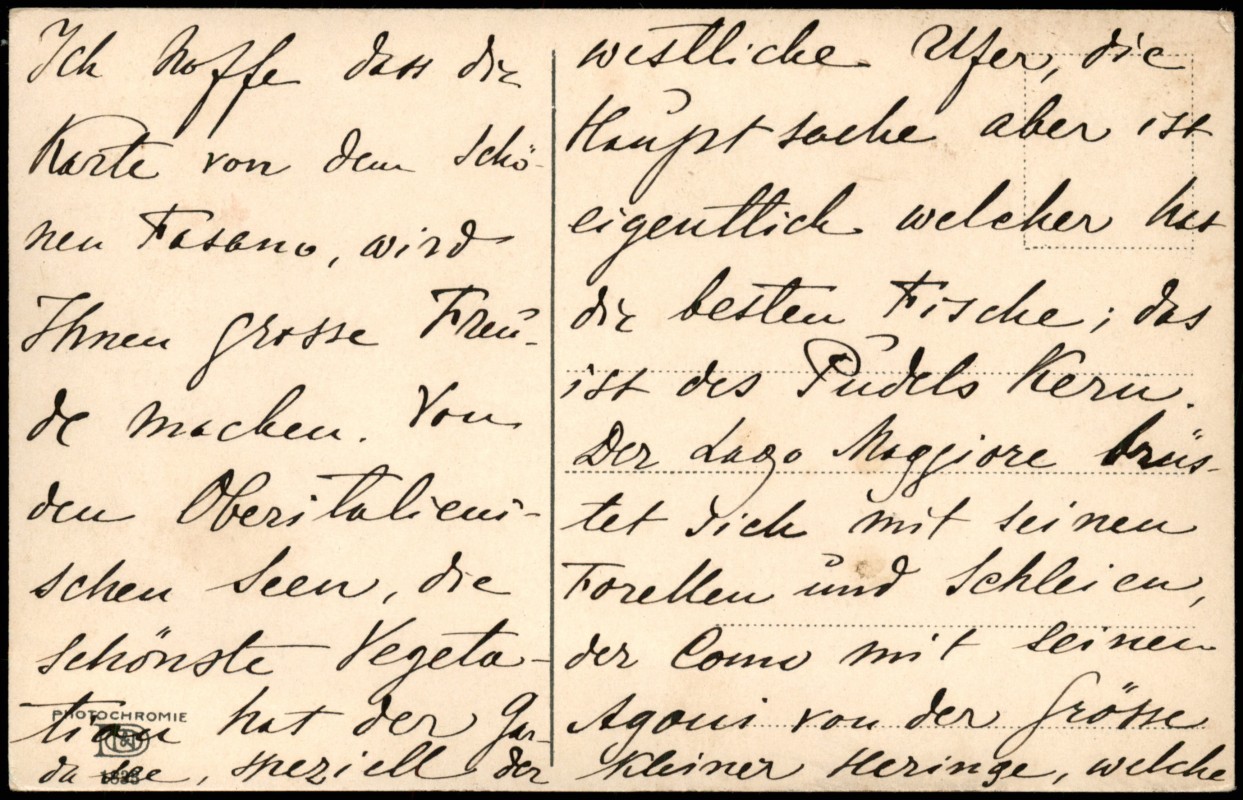 Ich hoffe dass die
Karte von dem schö-
nen Fasano, wird
Ihnen grosse Freu-
de machen. Von
den Oberitalieni-
schen Seen, die
schönste Vegeta-
tion hat der Gar-
da See, speziell der
PHOTOCHROMIE
westliche Ufer, die
Hauptsache aber ist
eigentlich welcher hat
die besten Fische; das
ist des Pudels Kern.
Der Lago Maggiore brüs-
tet sich mit seinen
Forellen und Schleien,
der Como mit seinen
Agoni von der Grösse
kleiner Heringe, welche